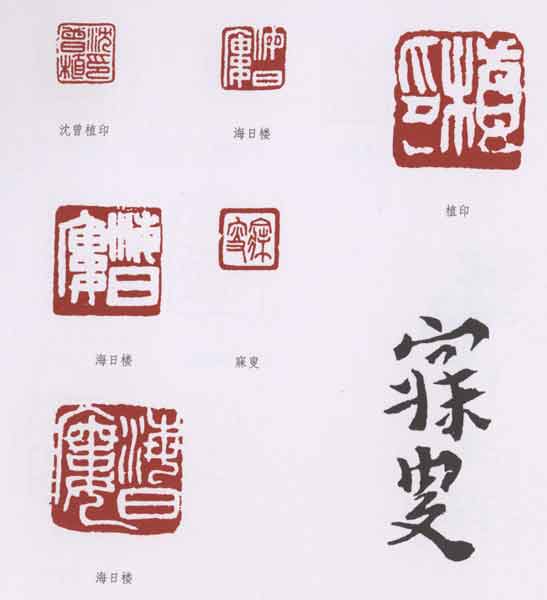 沈曾植印
海日楼
植印
海日楼
寐叟
海日楼
寐叟